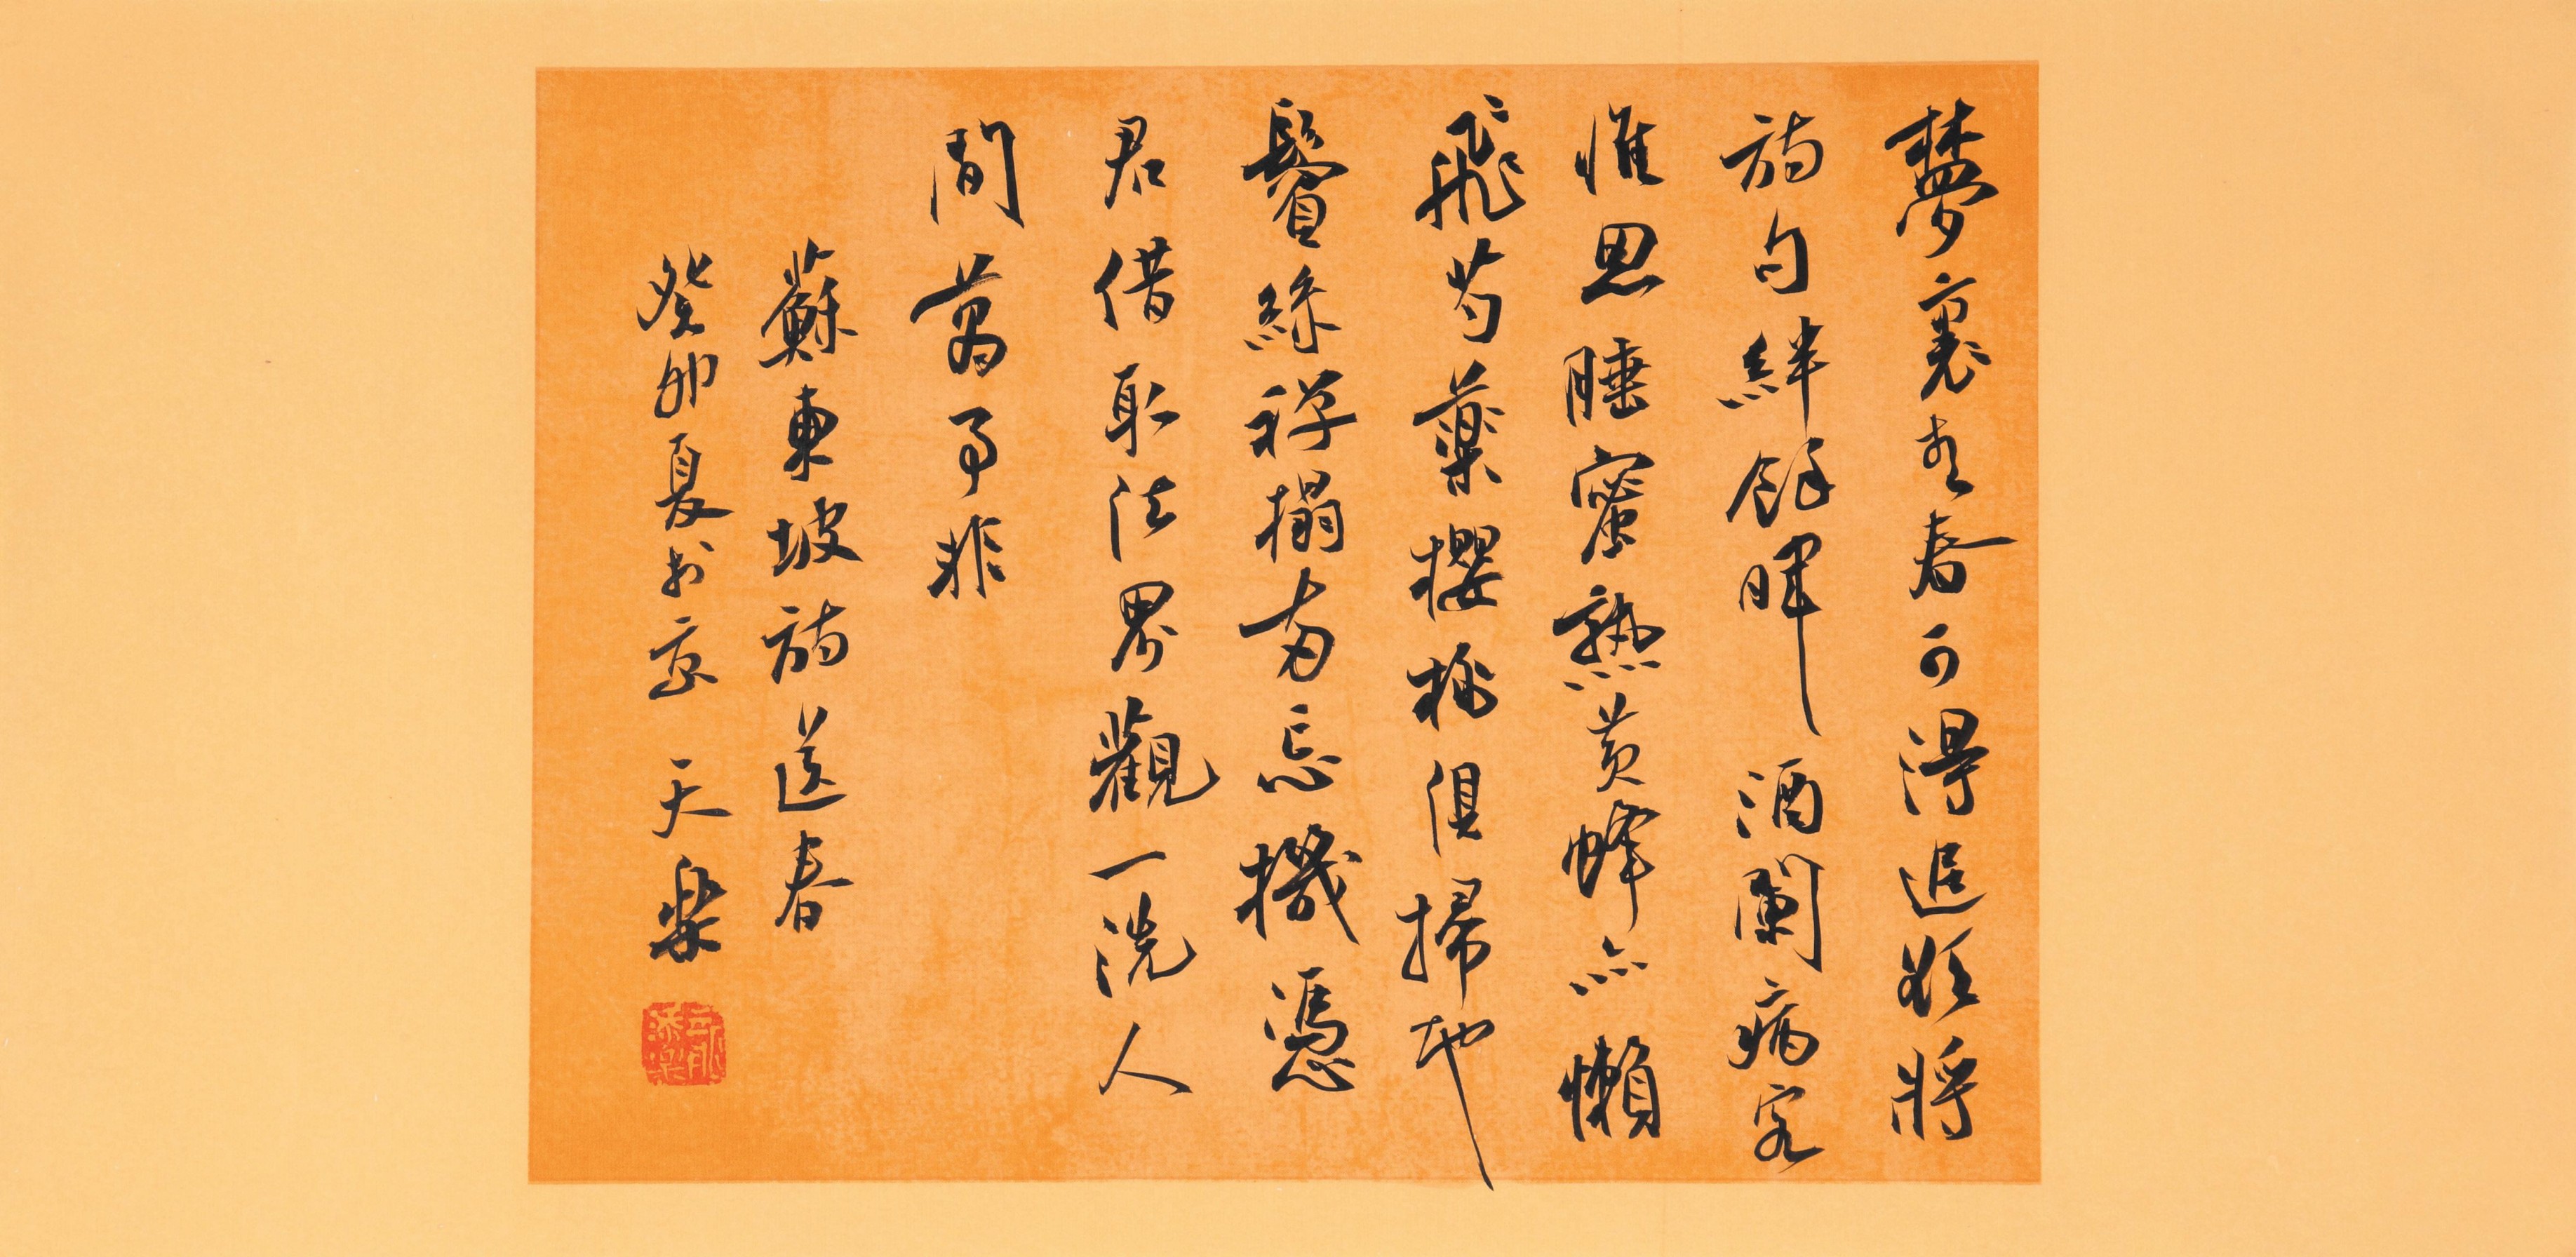 夢裏青春可得追欲將
詩句絆餘暉酒闌病客
惟思睡蜜熟黃蜂亦懶
飛芍藥櫻桃俱掃地
鬢絲禪榻兩忘機憑
君借取法界觀一洗人
間萬事非
蘇東坡詩送春
癸卯夏於 天樂